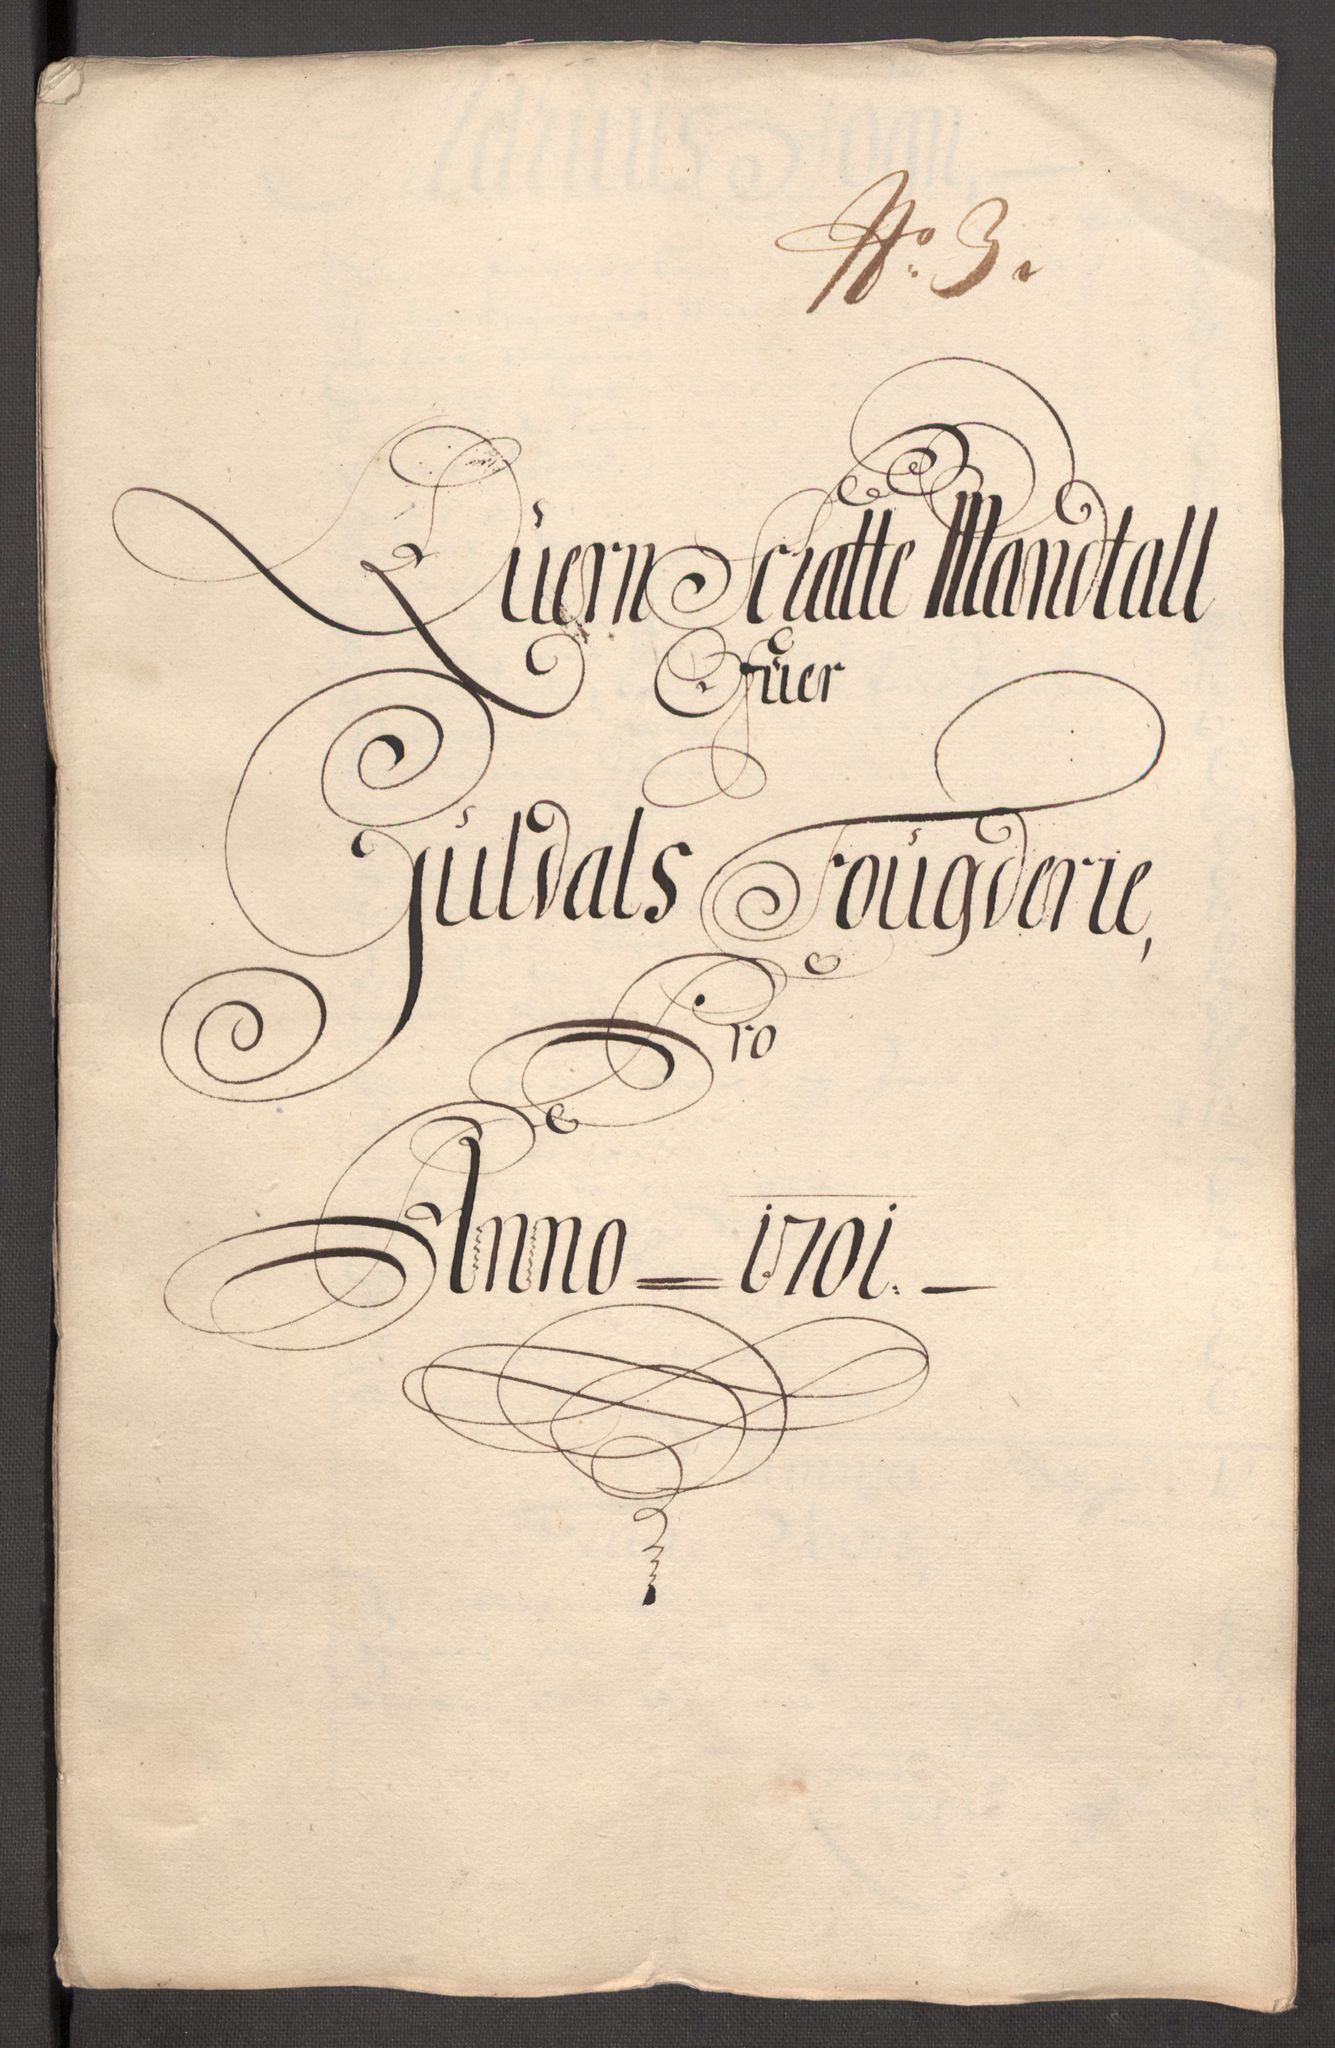 No. 3.
Quern Schatte Mandtall
Ofuer
Guldals Fougderie,
Pro
Anno 1701.